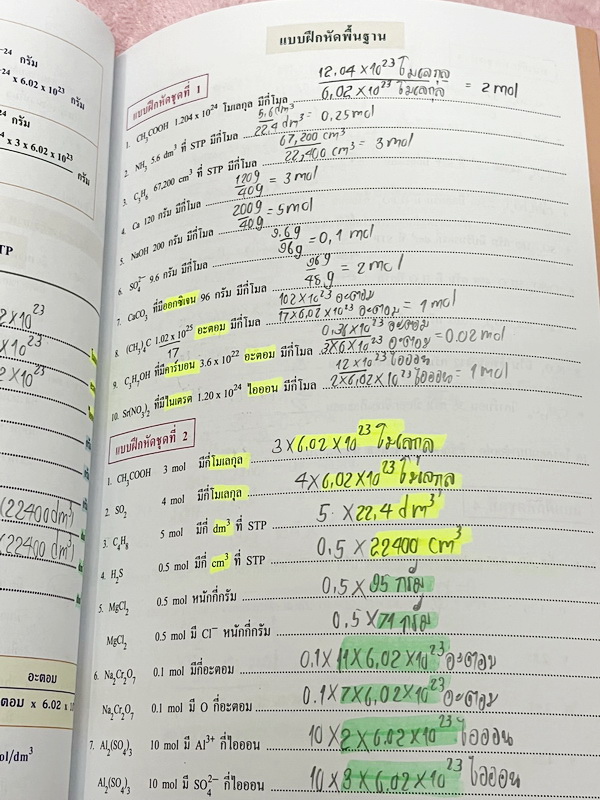 แบบฝึกหัดพื้นฐาน
แบบฝึกหัดชุดที่ 1
1. CH₃COOH 1.204 x 10²⁴ โมเลกุล มีกี่โมล 12.04 X 10²³ โมเลกุล / 6.02 X 10²³ โมเลกุล = 2 mol
2. NH₃ 5.6 dm³ ที่ STP มีกี่โมล 5.6 dm³ / 22.4 dm³ = 0.25 mol
3. C₃H₈ 67,200 cm³ ที่ STP มีกี่โมล 67,200 cm³ / 22,400 cm³ = 3 mol
4. Ca 120 กรัม มีกี่โมล 120g / 40g = 3 mol
5. NaOH 200 กรัม มีกี่โมล 200g / 40g = 5 mol
6. SO₄²⁻ 9.6 กรัม มีกี่โมล 9.6g / 96g = 0,1 mol
7. CaCO₃ ที่มีออกซิเจน 96 กรัม มีกี่โมล 96g / 48g = 2 mol
8. (CH₃)₄C 1.02 x 10²⁵ อะตอม มีกี่โมล 102 X 10²³ อะตอม / 17 X 6.02 X 10²³ อะตอม = 1 mol
17
9. C₃H₇OH ที่มีคาร์บอน 3.6 x 10²² อะตอม มีกี่โมล 0.36 X 10²³ อะตอม / 3 X 6 X 10²³ อะตอม = 0.02 mol
10. Sr(NO₃)₂ ที่มีไนเตรต 1.20 x 10²⁴ ไอออน มีกี่โมล 12 X 10²³ ไอออน / 2 X 6.02 X 10²³ ไอออน = 1 mol
แบบฝึกหัดชุดที่ 2
1. CH₃COOH 3 mol มีกี่โมเลกุล 3 X 6.02 X 10²³ โมเลกุล
2. SO₂ 4 mol มีกี่โมเลกุล 4 X 6.02 X 10²³ โมเลกุล
3. C₄H₈ 5 mol มีกี่ dm³ ที่ STP 5 X 22.4 dm³
4. H₂S 0.5 mol มีกี่ cm³ ที่ STP 0.5 X 22400 cm³
5. MgCl₂ 0.5 mol หนักกี่กรัม 0.5 X 95 กรัม
MgCl₂ 0.5 mol มี Cl⁻ หนักกี่กรัม 0.5 X 71 กรัม
6. Na₂Cr₂O₇ 0.1 mol มีกี่อะตอม 0.1 X 11 X 6.02 X 10²³ อะตอม
Na₂Cr₂O₇ 0.1 mol มี O กี่อะตอม 0.1 X 7 X 6.02 X 10²³ อะตอม
7. Al₂(SO₄)₃ 10 mol มี Al³⁺ กี่ไอออน 10 X 2 X 6.02 X 10²³ ไอออน
Al₂(SO₄)₃ 10 mol มี SO₄²⁻ กี่ไอออน 10 X 3 X 6.02 X 10²³ ไอออน